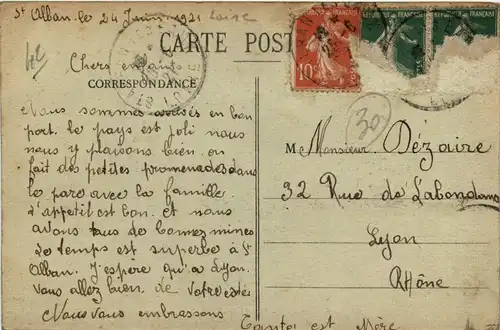 St Alban le 24 Juin 1921 Loire
CARTE POSTALE
RÉPUBLIQUE FRANÇAISE
10
42
Chers enfants
CORRESPONDANCE
30
Nous sommes arrivés en bon
port. le pays est joli nous
nous y plaisons bien, on
fait des petites promenades dans
le parc avec la famille
d'appetit est bon. et nous
avons tous de bonnes mines
le temps est superbe à St
Alban. J'espère qu'a Lyon.
vous allez bien, de votre côté
Nous vous embrassons
M Monsieur Dézaire
32 Rue de
Lyon
Rhône
et Mère